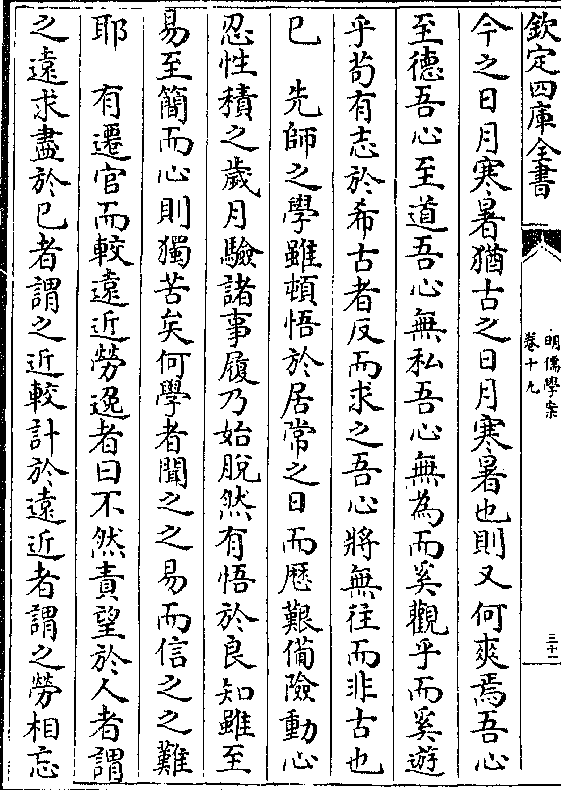 欽定四庫全書
明儒學案
卷十九
三十一
今之日月寒暑猶古之日月寒暑也則又何爽焉吾心
至德吾心至道吾心無私吾心無為而奚觀乎而奚遊
乎茍有志於希古者反而求之吾心將無往而非古也
已　先師之學雖頓悟於居常之日而歷艱備險動心
忍性積之歲月驗諸事履乃始脫然有悟於良知雖至
易至簡而心則獨苦矣何學者聞之之易而信之之難
耶　有遷官而較遠近勞逸者曰不然責望於人者謂
之遠求盡於已者謂之近較計於遠近者謂之勞相忘